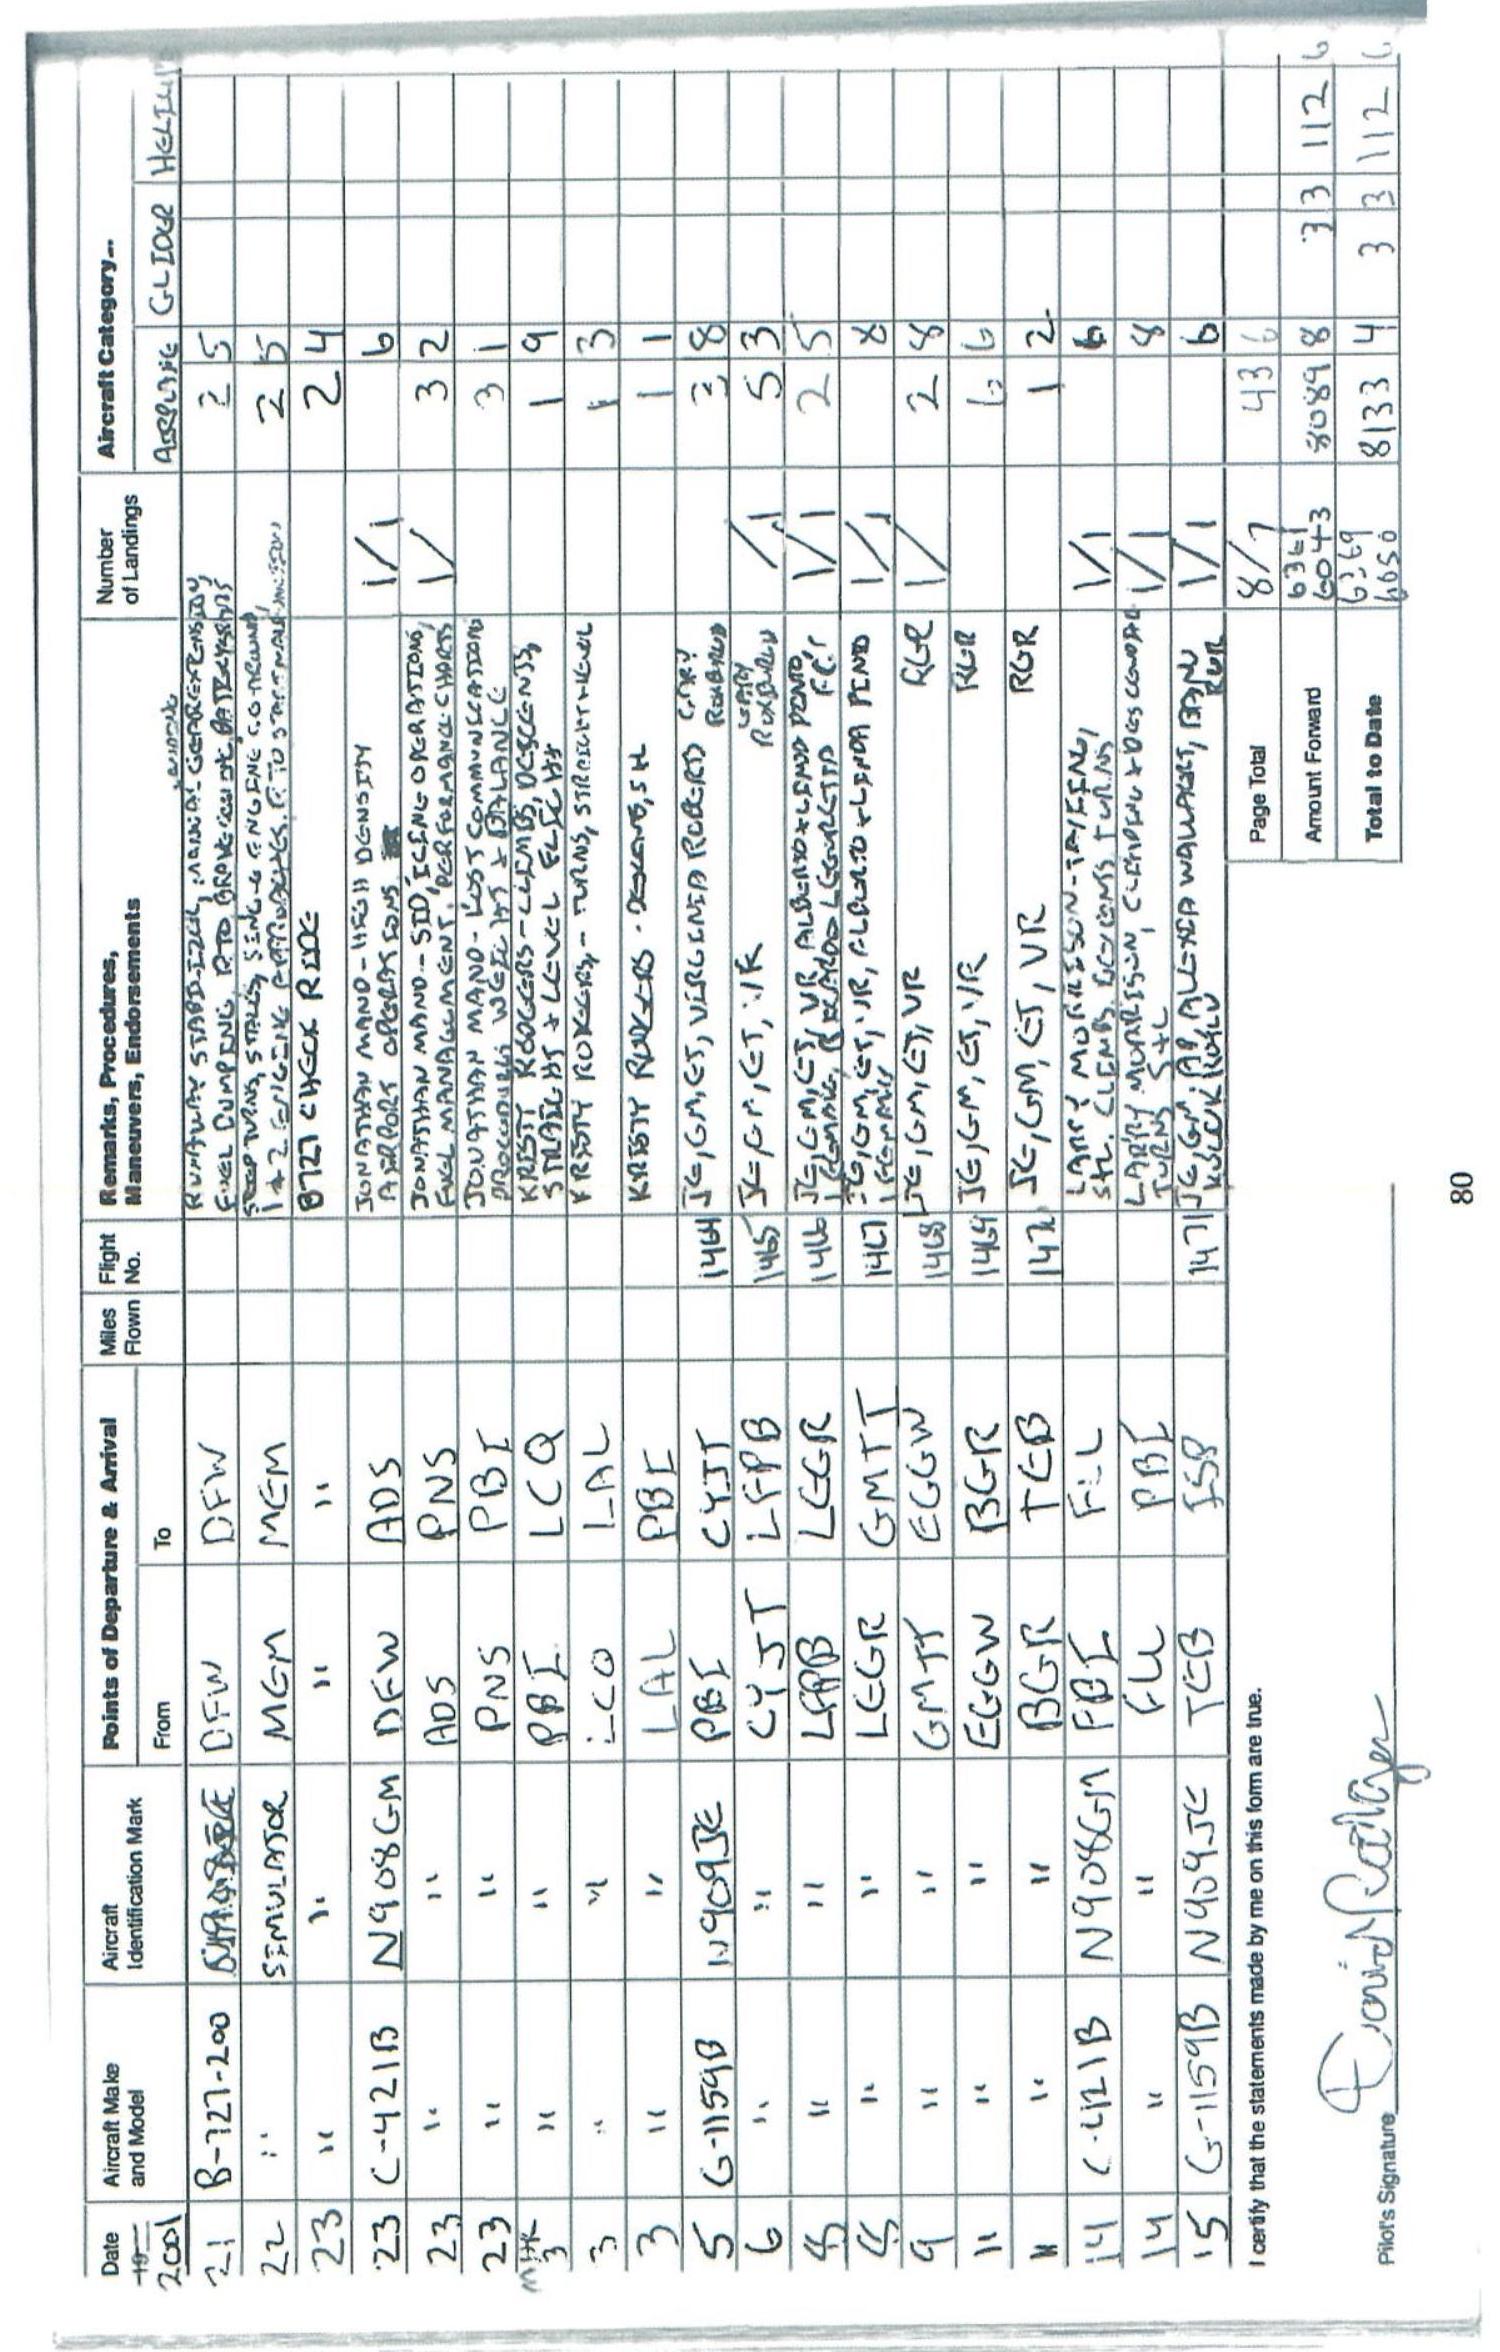 Date
19
2001
Aircraft Make
and Model
Aircraft
Identification Mark
Points of Departure & Arrival
From
To
Miles
Flown
Flight
No.
Remarks, Procedures,
Maneuvers, Endorsements
Number
of Landings
Aircraft Category...
AIRPLANE GLIDER
21 B-727-200 DFW DFW RUNAWAY STABILIZER, MANUAL GEAR EXTENSION, 2 5
FUEL DUMPING, RTO
22 " SIMULATOR MEM MEM STEEP TURNS, STALLS, SINGLE ENGINE GO AROUND, 2 5
1+2 ENGINE APPROACHES
23 " " " " B727 CHECK RIDE 2 4
23 C-421B N908GM DFW ADS JONATHAN MANO-HIGH DENSITY 1/1 6
AIRPORT OPERATIONS
23 " " ADS PNS JONATHAN MANO-SID, ICING OPERATIONS, 1/ 3 2
FUEL MANAGEMENT, PERFORMANCE CHARTS
23 " " PNS PBI JONATHAN MANO-LOST COMMUNICATIONS 3 1
PROCEDURES WEIGHT & BALANCE
MAR
3 " " PBI LCQ KRISTY RODGERS-CLIMBS, DESCENTS, 1 9
STRAIGHT & LEVEL FLIGHT
3 " " LCQ LAL KRISTY RODGERS-TURNS, STRAIGHT+LEVEL 1 3
3 " " LAL PBI KRISTY RODGERS- 1 1
5 G-1159B N909JE PBI CYJT 1464 JE, GM, ET, VIRGINIA ROBERTS GARY ROXBURGH 2 8
6 " " CYJT LFPB 1465 JE, GM, ET, VR GARY ROXBURGH /1 5 3
8 " " LFPB LEGR 1466 JE, GM, ET, VR, ALBERTO+LINDA PINTO 1/1 2 5
8 " " LEGR GMTT 1467 JE, GM, ET, VR, ALBERTO+LINDA PINTO 1/1 8
9 " " GMTT EGGW 1468 JE, GM, ET, VR RGR 1/ 2 8
11 " " EGGW BGR 1469 JE, GM, ET, VR RGR 6 6
11 " " BGR TEB 1470 JE, GM, ET, VR RGR 1 2
14 C-421B N908GM PBI FLL LARRY MORRISON-TAXIING, 1/1 6
S+L, CLIMBS, DESCENTS TURNS
14 " " FLL PBI LARRY MORRISON, CLIMBING & DESCENDING 1/1 8
TURNS S+L
15 G-1159B N909JE TEB ISP 1471 JE, GM, AP, ALEXIA WALLAERT, BANU 1/1 6
RGR
I certify that the statements made by me on this form are true.
Page Total 8/7 43 6
Amount Forward 6361 6043 8089 8 3 3 112 6
Total to Date 6369 6050 8133 4 3 3 112 6
Pilot's Signature
80